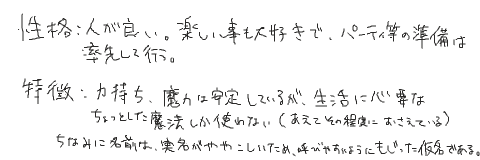 性格:人が良い。楽しい事も大好きで、パーティ等の準備は
率先して行う。
特徴:力持ち、魔力は安定しているが、生活に必要な
ちょっとした魔法しか使わない(あえてその程度におさえている)
ちなみに名前は、実名がややこしいため、呼びやすいようにもじった仮名である。